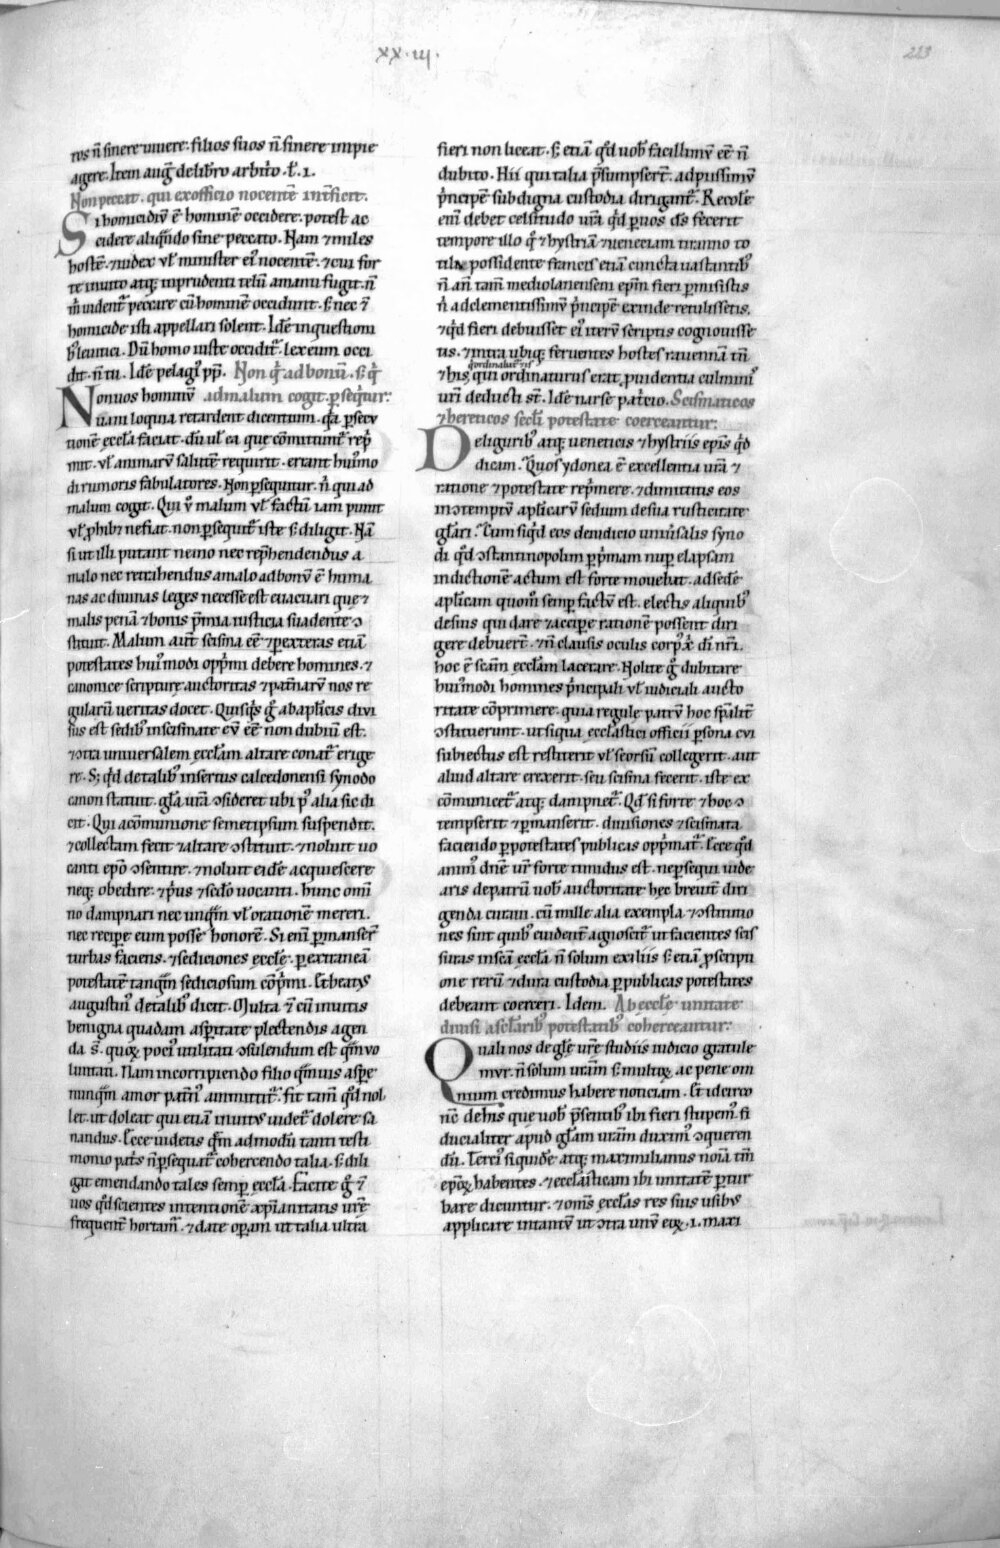 XX·III·
223
ros n̄ sinere uiuere. filios suos n̄ sinere impie
agere. Item aug̅ de libro arbit̊o. l. I.
Non peccat. qui ex officio nocentē int̄ficit.
Si homicidiū ē hominē occidere. potest ac
cidere aliqn̄do sine peccato. Nam ⁊ miles
hostē. ⁊ iudex ul̄ minister ei᷒ nocentē. ⁊ cui for
te inuito atq; imprudenti telū amanu fugit. n̄
m̄ uident᷑ peccare cū hominē occidunt. s; nec ē
homicide isti appellari solent. Idē in questioni
b᷒ leuitici. Dū homo iuste occidit᷑. lex eum occi
dit. n̄ tu. Idē pelagi᷒ pp̄. Non q̊ ad bonū. s; q̊
ad malum cogit. p̱seq̊tur:
Non uos hominū
uaniloquia retardent dicentium. q̊a p̱secu
tionē eccl̄a faciat. dū ul̄ ea que cōmittunt᷑ rep̊
mit. ul̄ animarū salutē requirit. errant hui᷒mo
di rumoris fabulatores. Non p̱sequitur. n̄ qui ad
malum cogit. Qui ū malum ul̄ factū iam punit
ul̄ p̱hibz ne fiat. non p̱sequit᷑ iste s; diligit. Nā
si ut illi putant nemo nec rep̱hendendus a
malo nec retrahendus a malo ad bonū ē huma
nas ac diuinas leges necesse est euacuari que ⁊
malis penā ⁊ bonis p̱mia iusticia suadente ↄ
stituit. Malum aut̄ scisma eē ⁊ p̱ exteras etiā
potestates hui᷒modi opp̊mi debere homines. ⁊
canonice scripture auctoritas ⁊ pat̄narū nos re
gularū ueritas docet. Quisq̊s g̊ ab apl̄icis diui
sus est sedib᷒ in scismate eū eē non dubiū est.
⁊ ↄtra uniuersalem eccl̄am altare conat᷑ erige
re. S; q̊d de talib᷒ insertus calcedonensi synodo
canon statuit. gl̄a ur̄a ↄsideret ubi p᷒ alia sic di
cit. Qui a cōmunione semetipsum suspendit.
⁊ collectam fecit ⁊ altare ↄstituit. ⁊ noluit uo
canti ep̄o ↄsentire. ⁊ noluit eidē acquiescere
neq; obedire. ⁊ p̊us ⁊ sc̄do uocanti. hunc om̄i
no dampnari nec unq̄m ul̄ orationē mereri.
nec recipe̱ eum posse honorē. Si eni p̱manser̄
turbas faciens. ⁊ sediciones eccl̄e. p̱ extraneā
potestatē tanq̄m sediciosum cōp̊mi. Et beat᷒
augustin᷒ de talib᷒ dicit. Multa ē cū inuitis
benigna quadam asp̱itate plectendis agen
da s̄. quoꝝ poci᷒ utilitati ↄsulendum est q̄m uo
luntati. Nam in corripiendo filio q̄muis asp̱e
nunq̄m amor patn᷒ amittitur. fit tam̄ q̊d nol
let. ut doleat qui etiā inuit᷒ uidet᷑ dolore sa
nandus. Ecce uidetis q̄m admodū tanti testi
monio pat̊s n̄ p̱sequat᷑ cohercendo talia. s; dili
git emendando tales semp̱ eccl̄a. Facite g̊ ē
uos q̊d scientes intentionē xp̄ianitatis ur̄e
frequent̄ hortam᷑. ⁊ date op̱am ut talia ultra
fieri non liceat. s; etiā q̊d uob᷒ facillimū eē n̄
dubito. Hii qui talia p̱sumpser̄. ad piissimū
p̊ncipē sub digna custodia dirigant᷑. Recole̱
eni debet celsitudo ur̄a q̊d p̱ uos d̄s fecerit
tempore illo q̊ ⁊ hystriā ⁊ ueneciam tiranno to
tila possidente francis etiā cuncta uastantib᷒
n̄ an̄ tam̄ mediolanensem ep̄m fieri p̱misistis
n̄ ad clementissimū p̊ncipē exinde retulissetis.
⁊ q̊d fieri debuisset ei᷒ iterū scriptis cognouisse
tis. ⁊ intra ubiq; feruentes hostes rauennā tn̄
⁊ his qui ordinaturus erat puidentia culminis
uri deducti st̄. Idē narse patricio. Scismaticos
⁊ hereticos secl̄i potestate coerceantur:
De liguribus atq; ueneticis ⁊ hystriis ep̄is q̊d
dicam. Quos ydonea ē excellentia ur̄a ⁊
ratione ⁊ potestate rep̊mere. ⁊ dimittitis eos
in ↄtemptū apl̄icarū sedium de sua rusticitate
gl̄ari. Cum siq̊d eos de iudicio uniu̱salis syno
di q̊d ↄstantinopolim p̱ p̊mam nup̱ elapsam
indictionē actum est forte mouebat. ad sedē
apl̄icam quom̊ semp̱ factū est. electis aliquib᷒
de suis qui dare ⁊ accipe̱ rationē possent diri
gere debuer̄. ⁊ n̄ clausis oculis corp᷒ xp̊i di nr̄i.
hoc ē sc̄am eccl̄am lacerare. Nolite g̊ dubitare
hui᷒modi homines p̊ncipali ul̄ iudiciali aucto
ritate cōprimere. quia regule patrū hoc sp̄alit̄
ↄstituerunt. ut siqua eccl̄astici officii p̱sona cui
subiectus est restiterit ul̄ seorsū collegerit. aut
aliud altare erexerit. seu scisma fecerit. iste ex
cōmunicet᷑ atq; dampnet᷑. Qd̄ si forte ⁊ hoc ↄ
tempserit ⁊ p̱manserit. diuisiones ⁊ scismata
faciendo p̱ potestates publicas opp̊mat᷑. Ecce q̊d
anim᷒ dn̄e ur̄ forte timidus est. ne p̱sequi uide
aris de patrū uob᷒ auctoritate hec breuit̄ diri
genda curaui. cū mille alia exempla ⁊ ↄstitutio
nes sint quib᷒ euident̄ agnoscit᷑ ut facientes scis
suras in sc̄a eccl̄a n̄ solum exiliis s; etiā p̱scripti
one rerū ⁊ dura custodia p̱ publicas potestates
debeant coerceri. Idem. Ab eccl̄e unitate
diuisi a secl̄arib᷒ potestatib᷒ coherceantur:
Quali nos de gl̄e ur̄e studiis iudicio gratule
mur. n̄ solum ur̄am s; multoꝝ ac pene om
nium credimus habere noticiam. Et idcirco
nc̄ de his que uob᷒ p̱sentib᷒ ibi fieri stupem᷒. fi
ducialiter apud gl̄am ur̄am duxim᷒ ↄqueren
dū. Terci᷒ siquidē atq; maximilianus noīa tn̄
ep̄oꝝ habentes. ⁊ eccl̄asticam ibi unitatē p̱tur
bare dicuntur. ⁊ om̄s eccl̄as res suis usib᷒
applicare intantū ut ↄtra unū eoꝝ .i. maxi